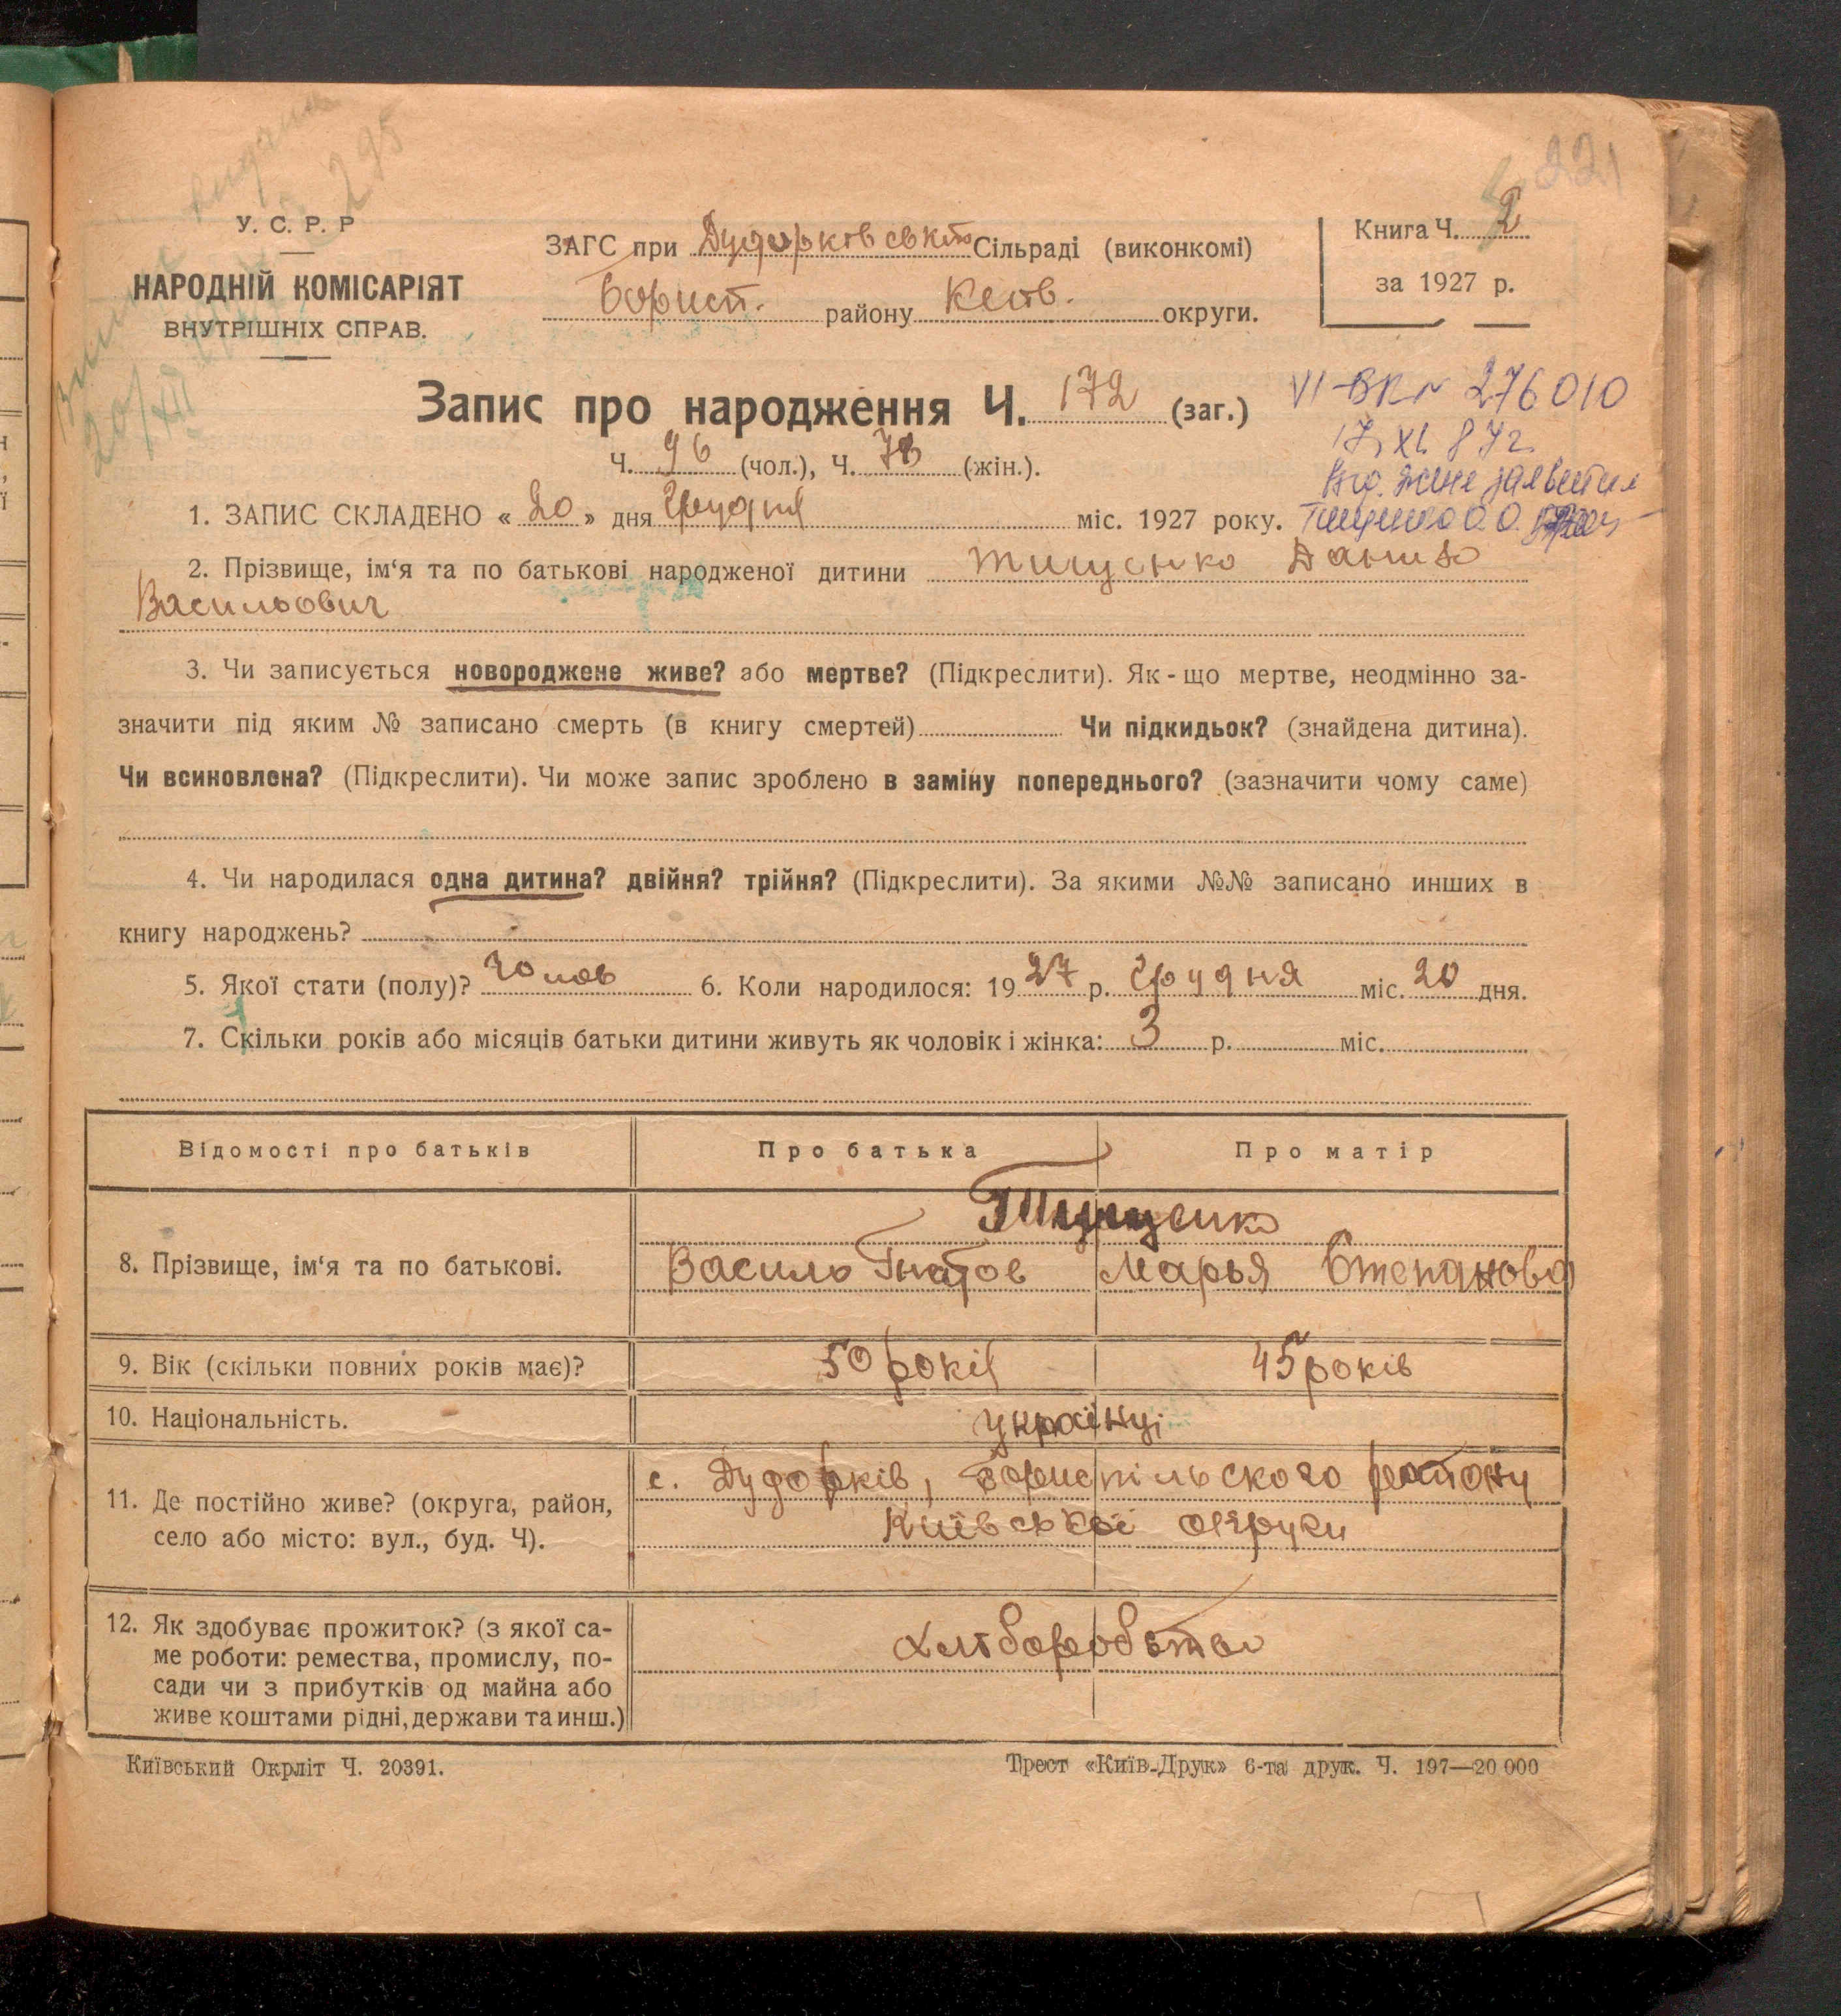 221
У. С. Р. Р
НАРОДНІЙ КОМІСАРІЯТ
ВНУТРІШНІХ СПРАВ.
ЗАГС при Дударківській Сільраді (виконкомі)
Борисп. району Київ. округи.
Книга Ч. 2
за 1927 р.
295
20/XII
Запис про народження Ч. 172 (заг.)
Ч. 96 (чол.), Ч. (жін.).
VI-БК № 276010
17. XI. 87 г.
Тищенко О.О.
1. ЗАПИС СКЛАДЕНО « 20 » дня Грудня міс. 1927 року.
2. Прізвище, ім‘я та по батькові народженої дитини Тищенко Данило
Васильович
3. Чи записується новороджене живе? або мертве? (Підкреслити). Як - що мертве, неодмінно за-
значити під яким № записано смерть (в книгу смертей) Чи підкидьок? (знайдена дитина).
Чи всиновлена? (Підкреслити). Чи може запис зроблено в заміну попереднього? (зазначити чому саме)
4. Чи народилася одна дитина? двійня? трійня? (Підкреслити). За якими №№ записано инших в
книгу народжень?
5. Якої стати (полу)? Чолов 6. Коли народилося: 1927 р. Грудня міс. 20 дня.
7. Скільки років або місяців батьки дитини живуть як чоловік і жінка: 3 р. міс.
Відомості про батьків Про батька Про матір
8. Прізвище, ім‘я та по батькові. Тищенко
Василь Гнатов Марья Степанова
9. Вік (скільки повних років має)? 50 років 45 років
10. Національність. українці
11. Де постійно живе? (округа, район,
село або місто: вул., буд. Ч).
с. Дударків, Бориспільського району
Київської округи
12. Як здобуває прожиток? (з якої са-
ме роботи: ремества, промислу, по-
сади чи з прибутків од майна або
живе коштами рідні, держави та инш.)
хліборобство
Київський Окрліт Ч. 20391.
Трест «Київ-Друк» 6-та друк. Ч. 197—20 000